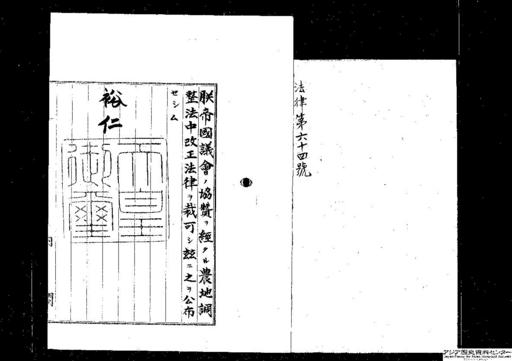 法律第六十四號
朕帝國議會ノ協贊ヲ經タル農地調
整法中改正法律ヲ裁可シ茲ニ之ヲ公布
セシム
裕仁
天皇御璽
アジア歴史資料センター